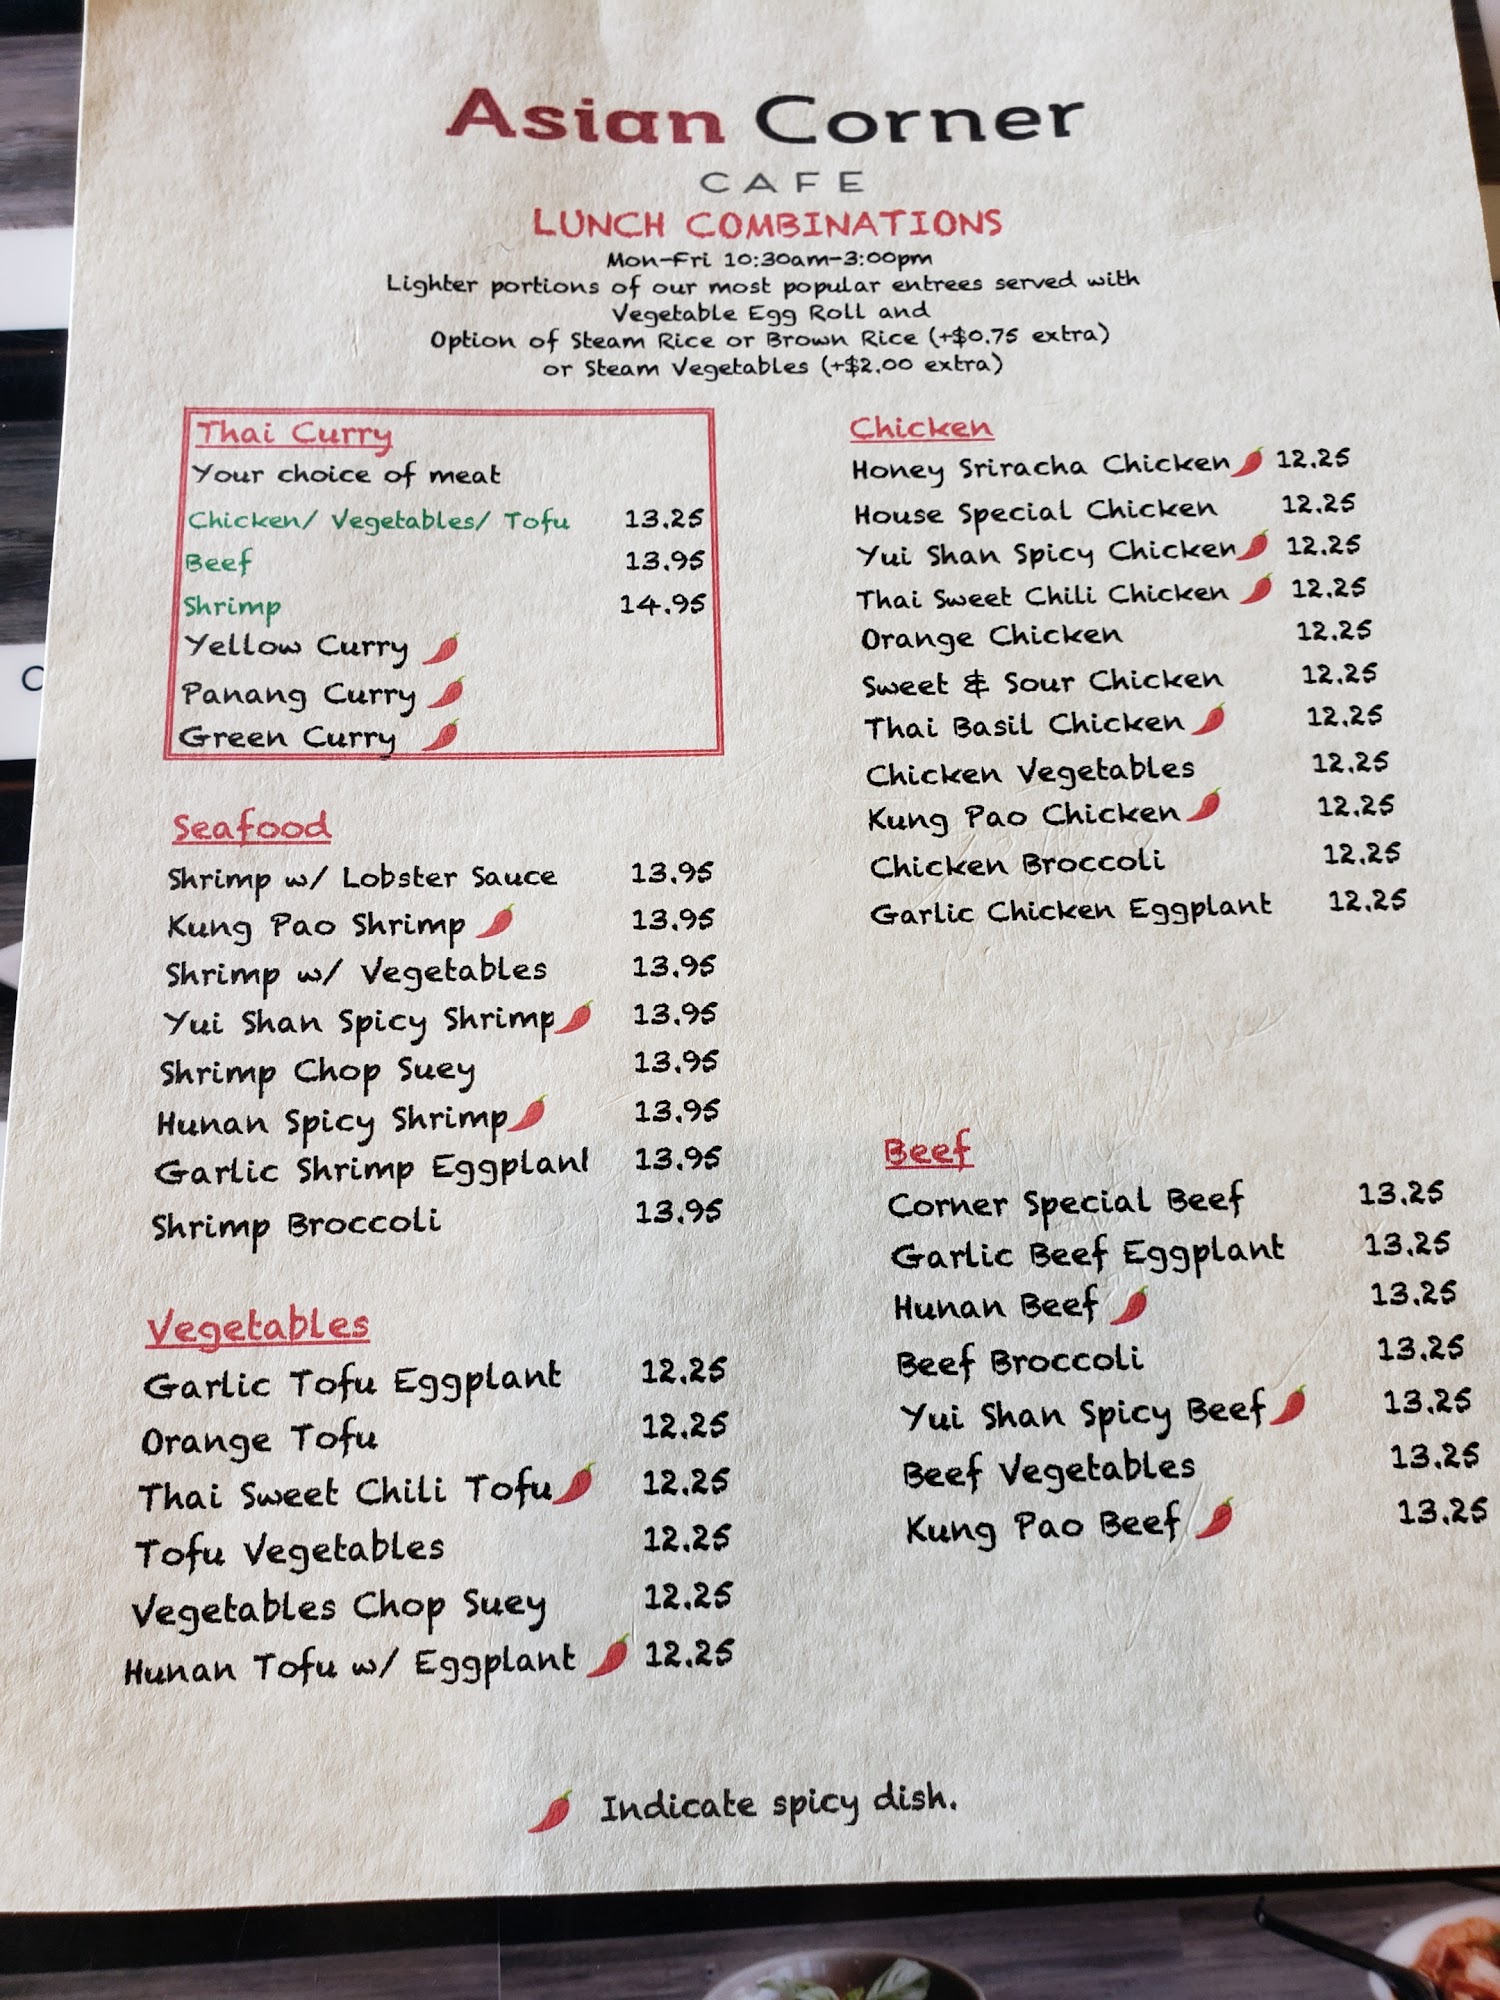 Asian Corner
CAFE
LUNCH COMBINATIONS
Mon-Fri 10:30am-3:00pm
Lighter portions of our most popular entrees served with
Vegetable Egg Roll and
Option of Steam Rice or Brown Rice (+$0.75 extra)
or Steam Vegetables (+$2.00 extra)
Thai Curry
Your choice of meat
Chicken/ Vegetables/ Tofu 13.25
Beef 13.95
Shrimp 14.95
Yellow Curry
Panang Curry
Green Curry
Seafood
Shrimp w/ Lobster Sauce 13.95
Kung Pao Shrimp 13.95
Shrimp w/ Vegetables 13.95
Yui Shan Spicy Shrimp 13.95
Shrimp Chop Suey 13.95
Hunan Spicy Shrimp 13.95
Garlic Shrimp Eggplant 13.95
Shrimp Broccoli 13.95
Vegetables
Garlic Tofu Eggplant 12.25
Orange Tofu 12.25
Thai Sweet Chili Tofu 12.25
Tofu Vegetables 12.25
Vegetables Chop Suey 12.25
Hunan Tofu w/ Eggplant 12.25
Chicken
Honey Sriracha Chicken 12.25
House Special Chicken 12.25
Yui Shan Spicy Chicken 12.25
Thai Sweet Chili Chicken 12.25
Orange Chicken 12.25
Sweet & Sour Chicken 12.25
Thai Basil Chicken 12.25
Chicken Vegetables 12.25
Kung Pao Chicken 12.25
Chicken Broccoli 12.25
Garlic Chicken Eggplant 12.25
Beef
Corner Special Beef 13.25
Garlic Beef Eggplant 13.25
Hunan Beef 13.25
Beef Broccoli 13.25
Yui Shan Spicy Beef 13.25
Beef Vegetables 13.25
Kung Pao Beef 13.25
Indicate spicy dish.